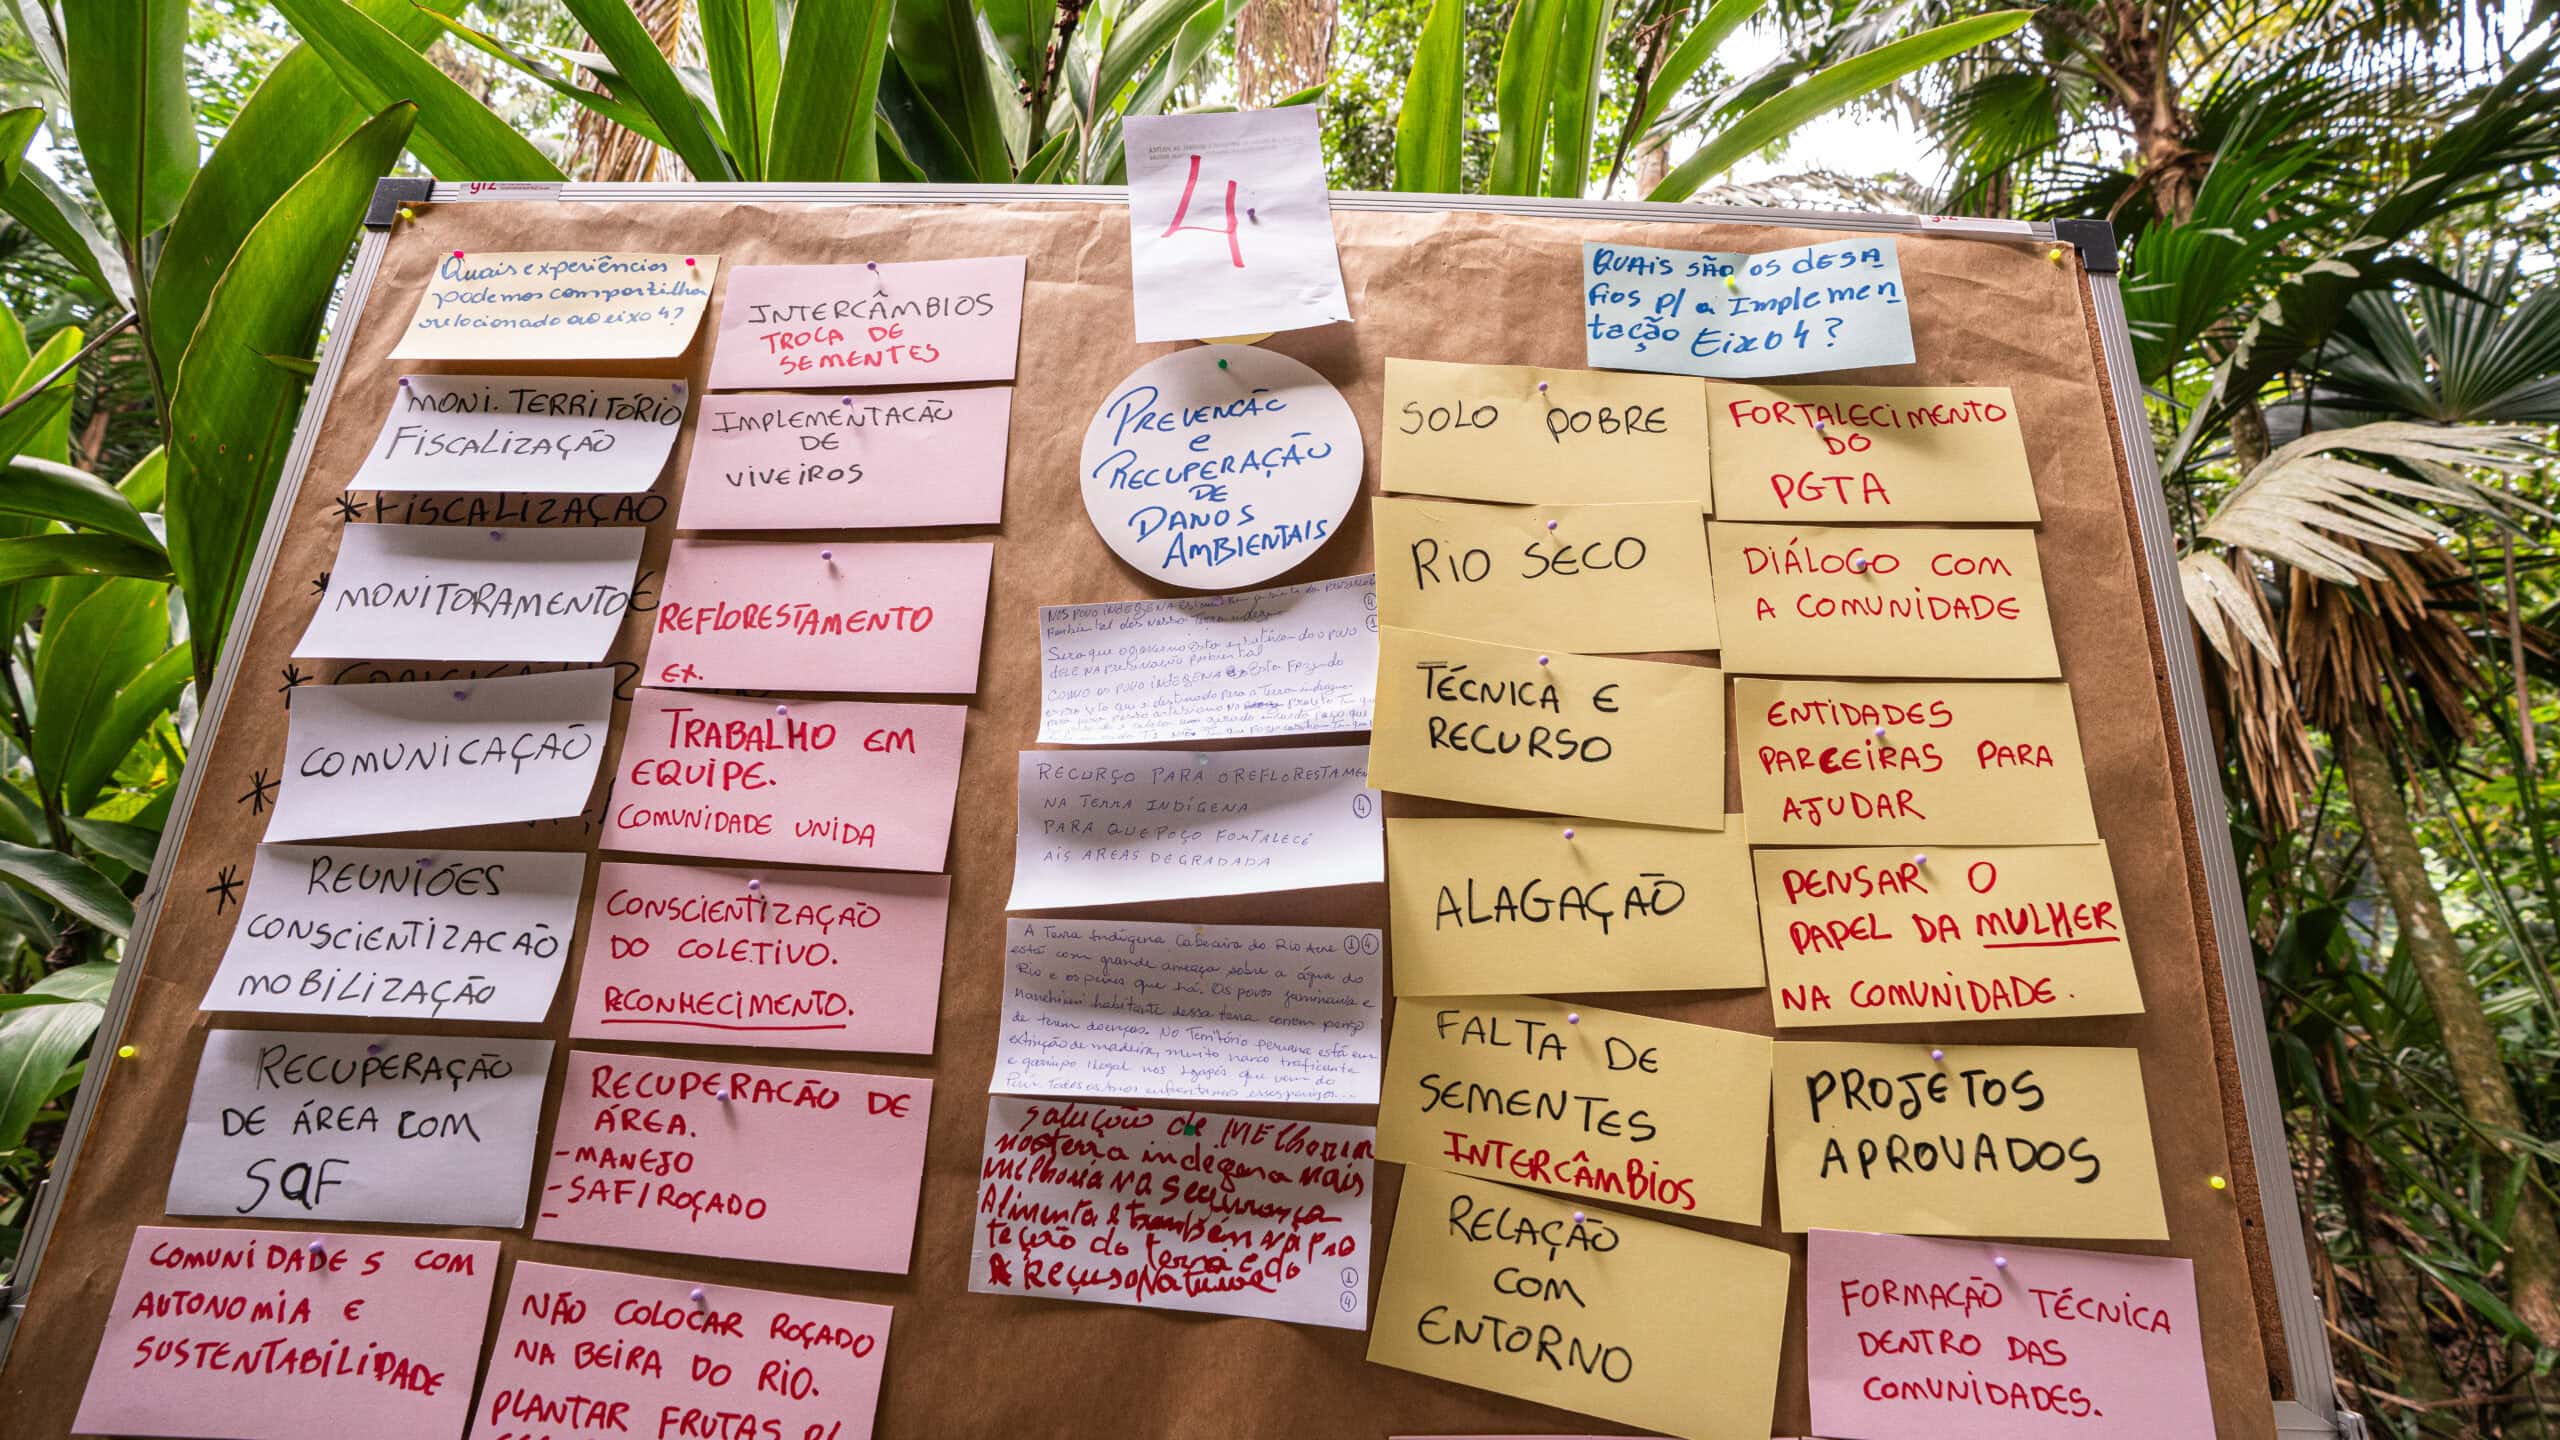 giz
4
Quais experiências
podemos compartilha
relacionado ao eixo 4?
MONI. TERRITÓRIO
FISCALIZAÇÃO
* FISCALIZAÇÃO
MONITORAMENTO
COMUNICAÇÃO
REUNIÕES
CONSCIENTIZACAÕ
MOBILIZAÇÃO
RECUPERAÇÃO
DE ÁREA COM
SAF
COMUNIDADES COM
AUTONOMIA E
SUSTENTABILIDADE
INTERCÂMBIOS
TROCA DE
SEMENTES
IMPLEMENTACÃO
DE
VIVEIROS
REFLORESTAMENTO
EX.
TRABALHO EM
EQUIPE.
COMUNIDADE UNIDA
CONSCIENTIZAÇÃO
DO COLETIVO.
RECONHECIMENTO.
RECUPERACÃO DE
ÁREA.
-MANEJO
-SAF/ROÇADO
-
NÃO COLOCAR ROÇADO
NA BEIRA DO RIO.
PLANTAR FRUTAS P/
PREVENCÃO
e
RECUPERAÇÃO
DE
DANOS
AMBIENTAIS
NOS POVO INDEGENA
4
1
DELE NA
COMO OS POVO INDEGENA
RECURÇO PARA O REFLORESTAMEN
NA TERRA INDÍGENA
4
PARA QUE POÇO FORTALECÉ
AIS AREAS DEGRADADA
A Terra Indígena Cabeceira do Rio Acre 1 4
está com grande ameaça sobre a água do
Rio e os peixes que há. Os povos Jaminawa e
Manchineri habitante dessa terra correm perigo
de terem doenças. No Território peruano está em
extinção de madeira, muito narco traficante
e garimpo ilegal nos que vem do
Peru. Todos estamos enfrentamos esses perigos...
Solução de Melhoria
nosterra indegena mais
melhoria na segurança
Alimenta e também na pro
teção do terra e do
Reçuso Natural
1
4
QUAIS SÃO OS DESA
fios p/ a Implemen
tação Eixo 4?
SOLO POBRE
RIO SECO
TÉCNICA E
RECURSO
ALAGAÇÃO
FALTA DE
SEMENTES
INTERCÂMBIOS
RELAÇÃO
COM
ENTORNO
FORTALECIMENTO
DO
PGTA
DIÁLOGO COM
A COMUNIDADE
ENTIDADES
PARCEIRAS PARA
AJUDAR
PENSAR O
PAPEL DA MULHER
NA COMUNIDADE.
PROJETOS
APROVADOS
FORMAÇÃO TÉCNICA
DENTRO DAS
COMUNIDADES.